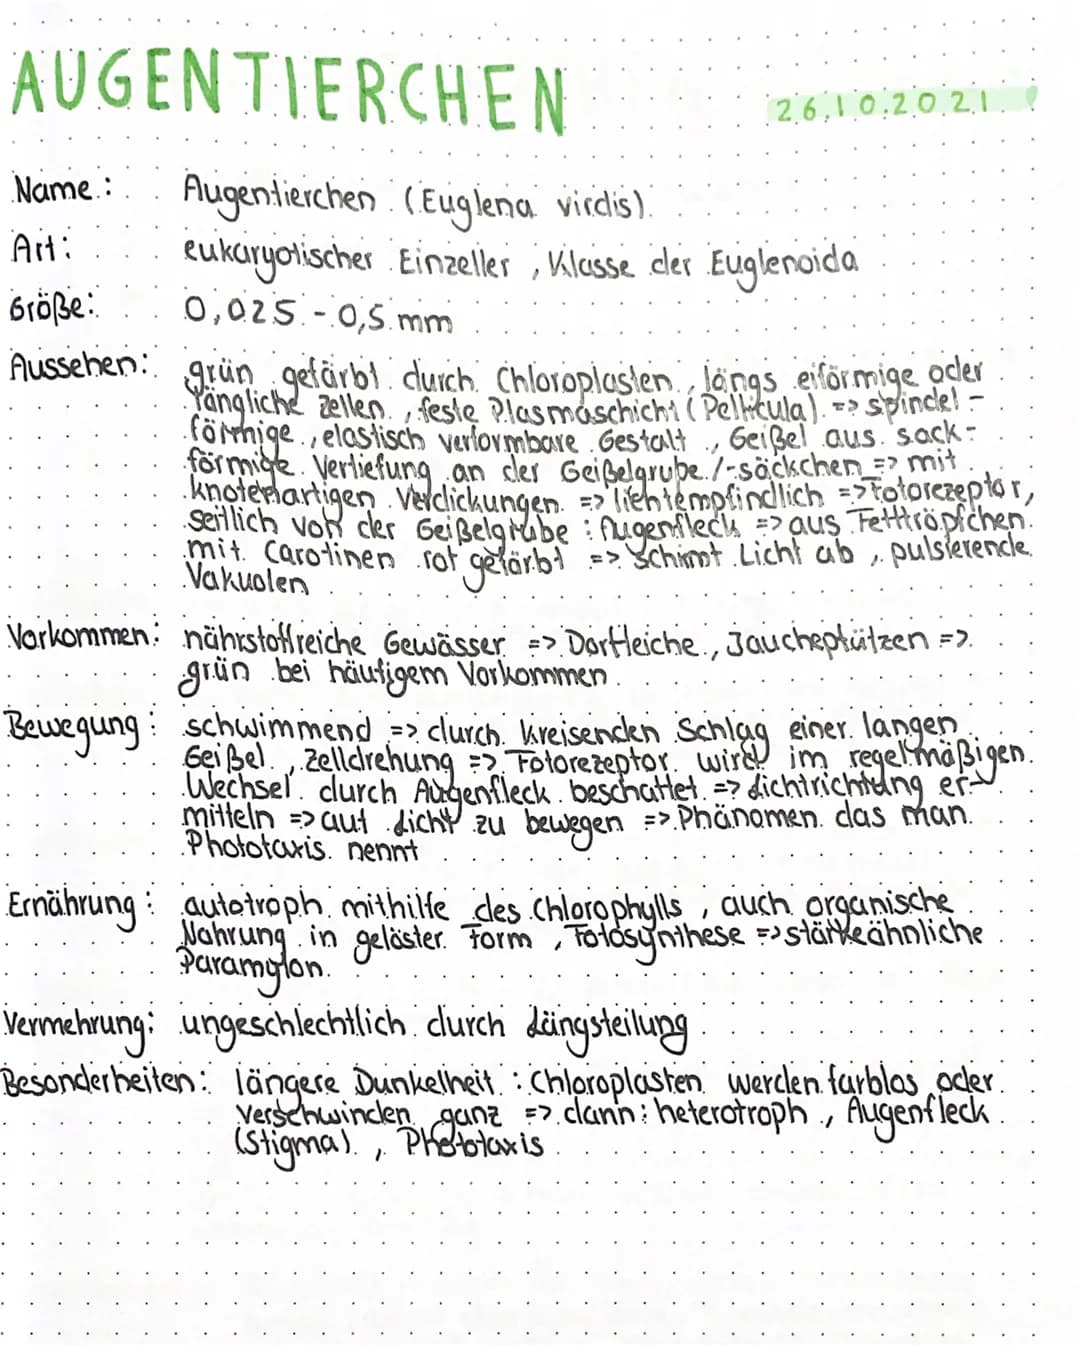 AUGENTIERCHEN
26.10.2021
Name: Augentierchen (Euglena virdis)
Art: eukaryotischer Einzeller, Klasse der Euglenoida
Größe: 0,025 - 0,5 mm
Aussehen: grün gefärbt durch Chloroplasten, längs eiförmige oder
längliche Zellen, feste Plasmaschicht (Pellicula) => spindel-
förmige, elastisch verformbare Gestalt, Geißel aus sack-
förmige Vertiefung an der Geißelgrube/-säckchen => mit
knotenartigen Verdickungen => lichtempfindlich => Fotorezeptor,
seitlich von der Geißelgrube: Augenfleck => aus Fetttröpfchen
mit Carotinen rot gefärbt => schirmt Licht ab, pulsierende
Vakuolen
Vorkommen: nährstoffreiche Gewässer => Dorfteiche, Jauchepfützen =>
grün bei häufigem Vorkommen
Bewegung: schwimmend => durch kreisenden Schlag einer langen
Geißel, Zelldrehung => Fotorezeptor wird im regelmäßigen
Wechsel durch Augenfleck beschattet => Lichtrichtung er-
mitteln => auf Licht zu bewegen => Phänomen das man
Phototaxis nennt
Ernährung: autotroph mithilfe des Chlorophylls, auch organische
Nahrung in gelöster Form, Fotosynthese => stärkeähnliche
Paramylon
Vermehrung: ungeschlechtlich durch Längsteilung
Besonderheiten: längere Dunkelheit: Chloroplasten werden farblos oder
verschwinden ganz => dann: heterotroph, Augenfleck
(Stigma), Phototaxis